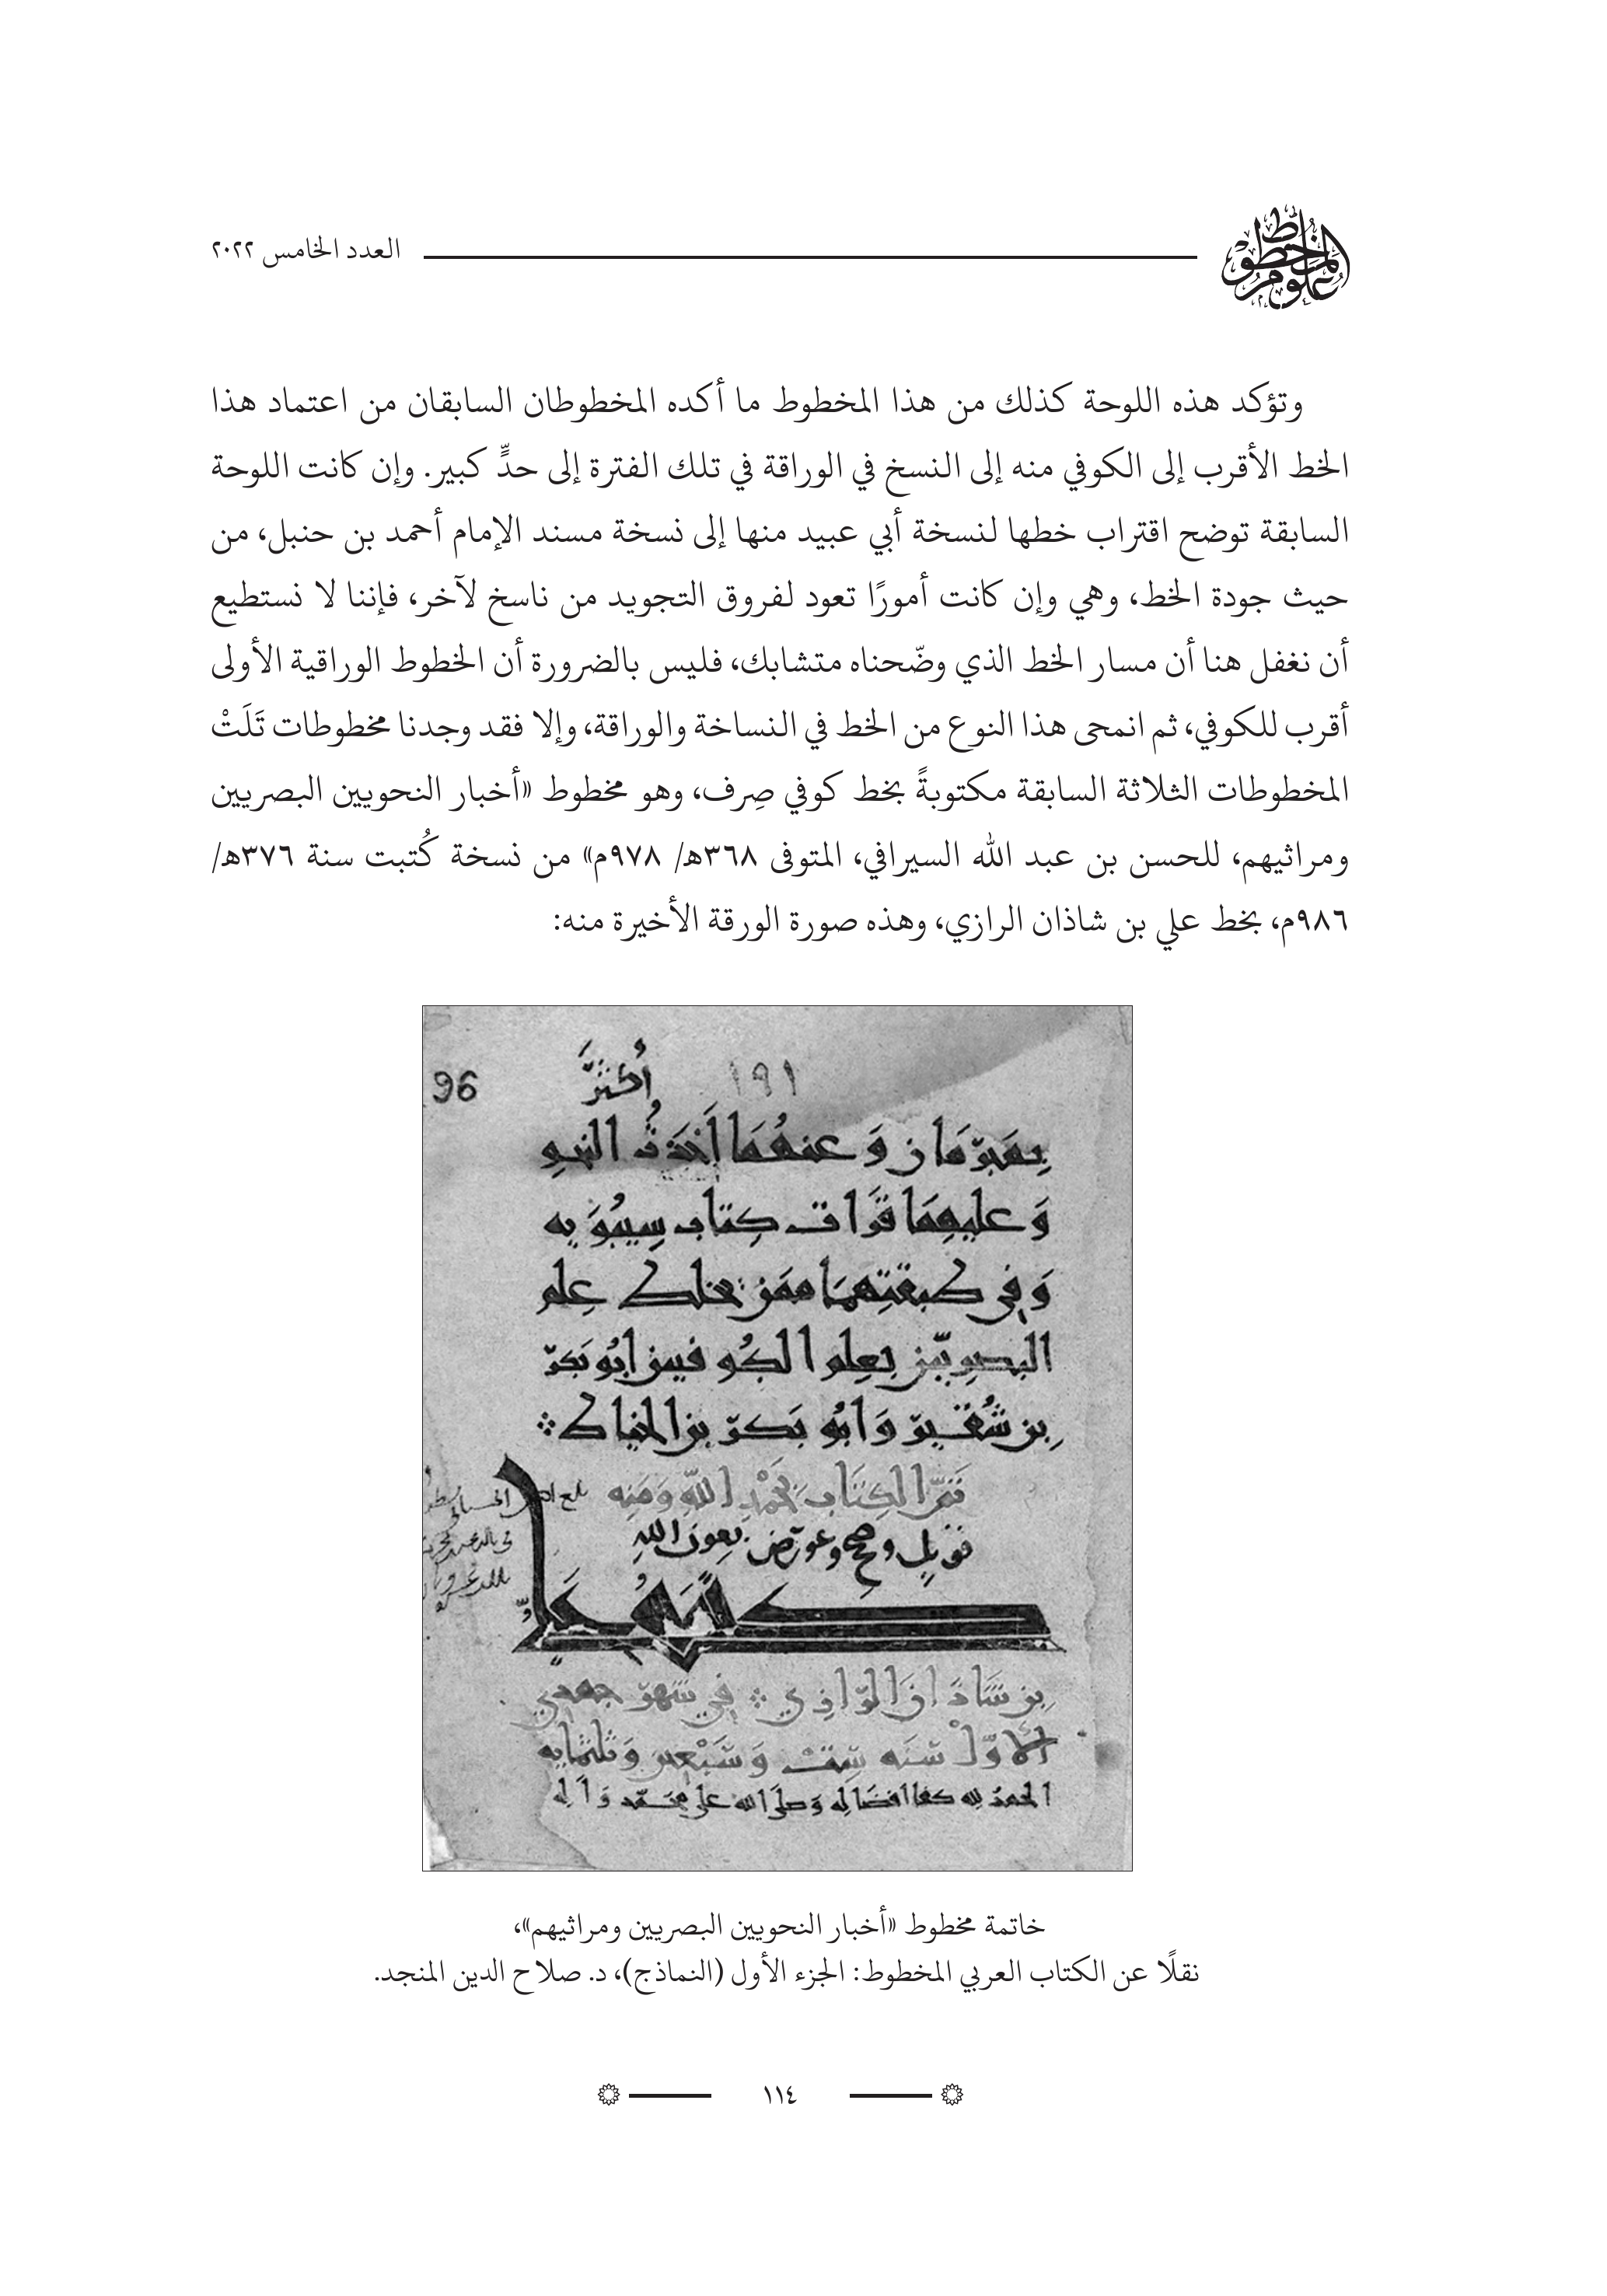 علوم المخطوط
العدد الخامس ٢٠٢٢
وتؤكد هذه اللوحة كذلك من هذا المخطوط ما أكده المخطوطان السابقان من اعتماد هذا
الخط الأقرب إلى الكوفي منه إلى النسخ في الوراقة في تلك الفترة إلى حدٍّ كبير. وإن كانت اللوحة
السابقة توضح اقتراب خطها لنسخة أبي عبيد منها إلى نسخة مسند الإمام أحمد بن حنبل، من
حيث جودة الخط، وهي وإن كانت أمورًا تعود لفروق التجويد من ناسخ لآخر، فإننا لا نستطيع
أن نغفل هنا أن مسار الخط الذي وضّحناه متشابك، فليس بالضرورة أن الخطوط الوراقية الأولى
أقرب للكوفي، ثم انمحى هذا النوع من الخط في النساخة والوراقة، وإلا فقد وجدنا مخطوطات تَلَتْ
المخطوطات الثلاثة السابقة مكتوبةً بخط كوفي صِرف، وهو مخطوط «أخبار النحويين البصريين
ومراثيهم، للحسن بن عبد الله السيرافي، المتوفى ٣٦٨هـ/ ٩٧٨م» من نسخة كُتبت سنة ٣٧٦هـ/
٩٨٦م، بخط علي بن شاذان الرازي، وهذه صورة الورقة الأخيرة منه:
96
١٩١
وَعنهُمَا أَخَذتُ النحوِ
وَعليهِمَا قرَات كِتاب سِيبُوَيه
وَفِي طبقتِهِمَا ممَن يخلط عِلم
البصرِيّين بعِلم الكُوفيين ابُو بَكر
بن شُقَير وَابُو بَكر بن الخياط
تَمَّ الكِتَاب بحَمْدِ اللّهِ وَمَنِه
قوبل وصح وعورض بعون الله
كتبهُ علي
بن شَاذَان الرّازِي فِي شهر جمدي
الاوّلْ سَنَه سِتْ وَسَبْعين وَثلثمايه
الحمدُ لله كفا افضَاله وَصلى الله على محَمّد وَاله
خاتمة مخطوط «أخبار النحويين البصريين ومراثيهم»،
نقلًا عن الكتاب العربي المخطوط: الجزء الأول (النماذج)، د. صلاح الدين المنجد.
١١٤